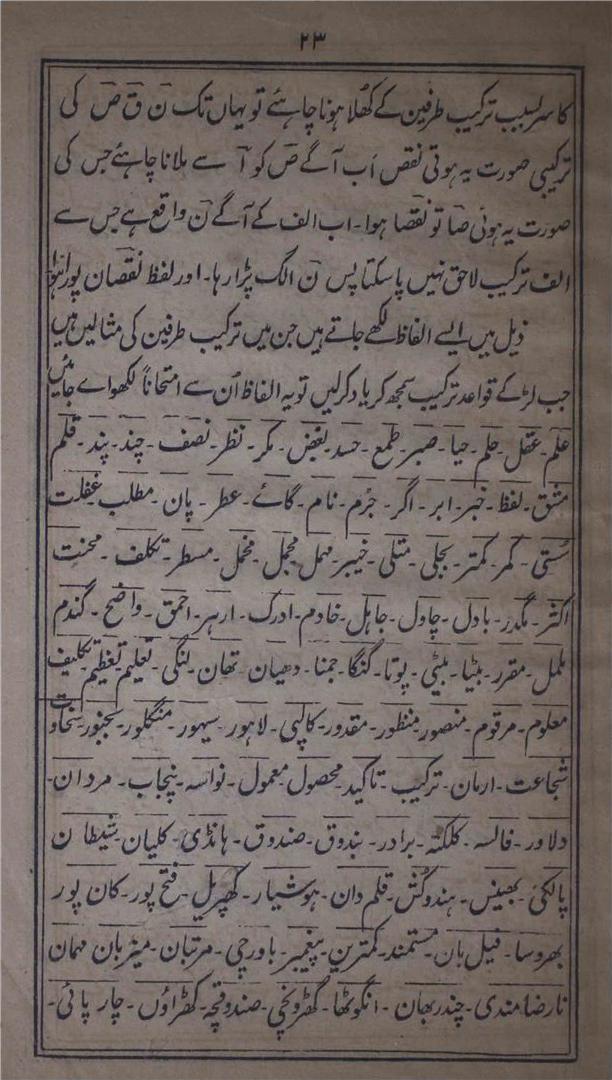 ۲۳
کا سر بسبب ترکیب طرفین کے کھلا ہونا چاہئے تو یہاں تک ن ق ص کی
ترکیبی صورت یہ ہوتی نقص اب آگے ص کو آ سے ملانا چاہئے جس کی
صورت یہ ہوئی صا تو نقصا ہوا۔ اب الف کے آگے ن واقع ہے جس سے
الف ترکیب لاحق نہیں پا سکتا پس ن الگ پڑا رہا۔ اور لفظ نقصان پورا ہوا
ذیل میں ایسے الفاظ لکھے جاتے ہیں جن میں ترکیب طرفین کی مثالیں ہیں
جب لڑکے قواعد ترکیب سمجھ کر یاد کر لیں تو یہ الفاظ اُن سے امتحاناً لکھوائے جائیں
علم۔ عقل۔ حلم۔ حیا۔ صبر۔ طمع۔ حسد۔ بغض۔ مکر۔ نظر۔ نصف۔ چند۔ پند۔ قلم
مشق۔ لفظ۔ خبر۔ ابر۔ اگر۔ جُرم۔ نام۔ گائے۔ عطر۔ پان۔ مطلب۔ غفلت
سُستی۔ گمر۔ کمتر۔ بجلی۔ متلی۔ خیبر۔ مہمل۔ مجمل۔ مخمل۔ مسطر۔ تکلف۔ محنت
اکثر۔ مگدر۔ بادل۔ چاول۔ جاہل۔ خادم۔ ادرک۔ ارہر۔ احمق۔ واضح۔ گندم
ململ۔ مقرر۔ بیٹا۔ بیٹی۔ پوتا۔ گنگا۔ جمنا۔ دھیان۔ تھان۔ لنگی۔ تعلیم۔ تعظیم۔ تکلیف
معلوم۔ مرقوم۔ منصور۔ منظور۔ مقدور۔ کالپی۔ لاہور۔ سیہور۔ منگلور۔ بجنور۔ سخاوت
شجاعت۔ ارمان۔ ترکیب۔ تاکید۔ محصول۔ معمول۔ نواسہ۔ پنجاب۔ مردان۔
دلاور۔ فالسہ۔ کلکتہ۔ برادر۔ بندوق۔ صندوق۔ ہانڈی۔ کلیان۔ شیطان
پالکی۔ بھینس۔ ہندوکُش۔ قلم دان۔ ہوشیار۔ کھپریل۔ فتح پور۔ کان پور
بھروسا۔ فیل بان۔ مستمند۔ کمترین۔ پیغمبر۔ باورچی۔ مرتبان۔ میزبان۔ مہمان
نارضامندی۔ چندربھان۔ انگوٹھا۔ گھڑونچی۔ صندوقچہ۔ کھڑاؤں۔ چارپائی۔